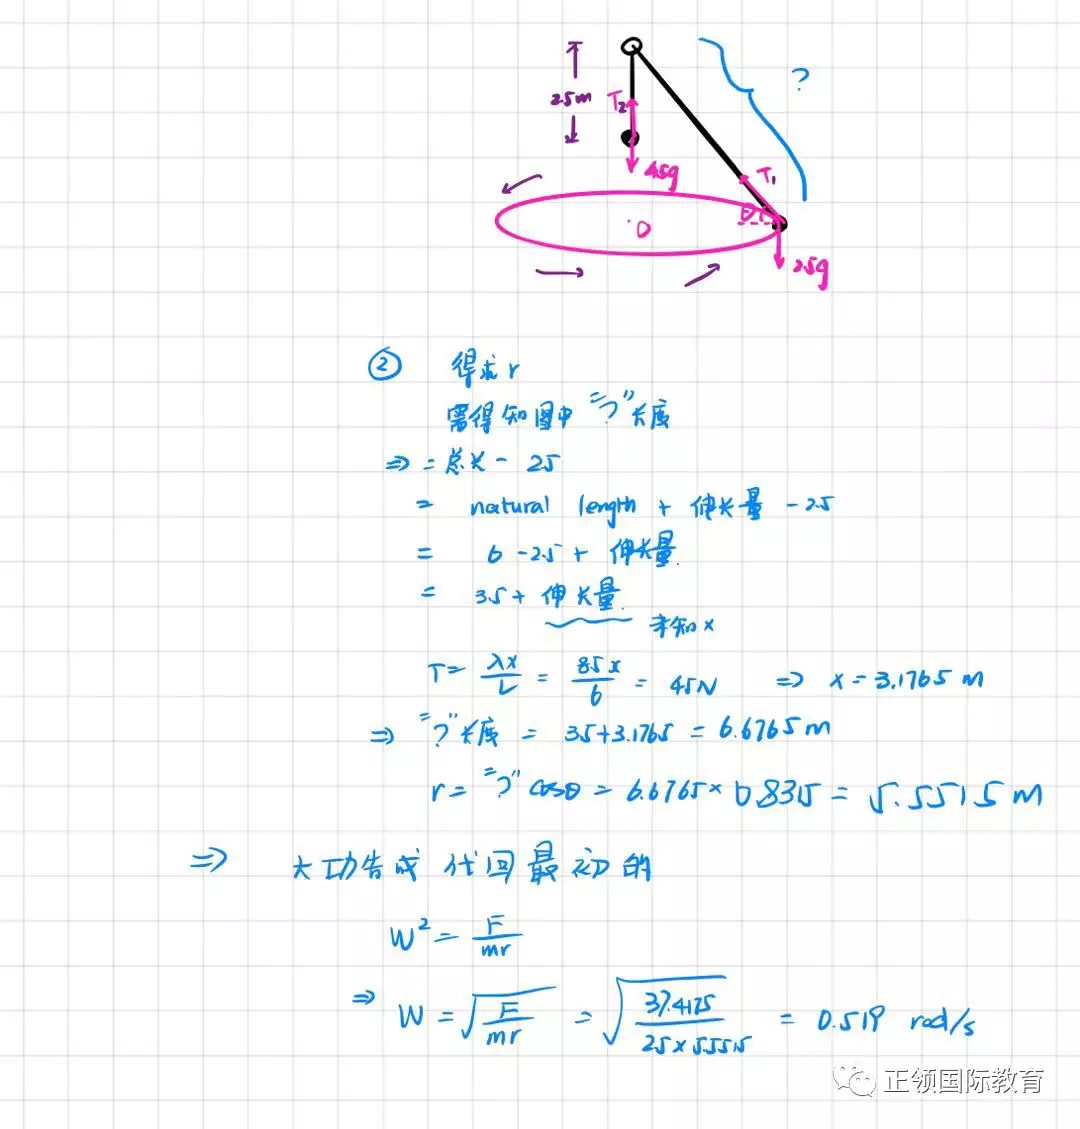 2.5m
T₂
?
T₁
4.5g
θ
O
2.5g
② 得求r
需得知图中"?"长度
⇒ = 总长 - 2.5
= natural length + 伸长量 - 2.5
= 6 - 2.5 + 伸长量
= 3.5 + 伸长量
未知x
T = λx/L = 85x/6 = 45N ⇒ x = 3.1765 m
⇒ "?"长度 = 3.5+3.1765 = 6.6765m
r = "?" cosθ = 6.6765 × 0.8315 = 5.5515 m
⇒ 大功告成 代回最初的
W² = F/mr
⇒ W = √(F/mr) = √(37.4175/(25×5.5515)) = 0.519 rad/s
正领国际教育